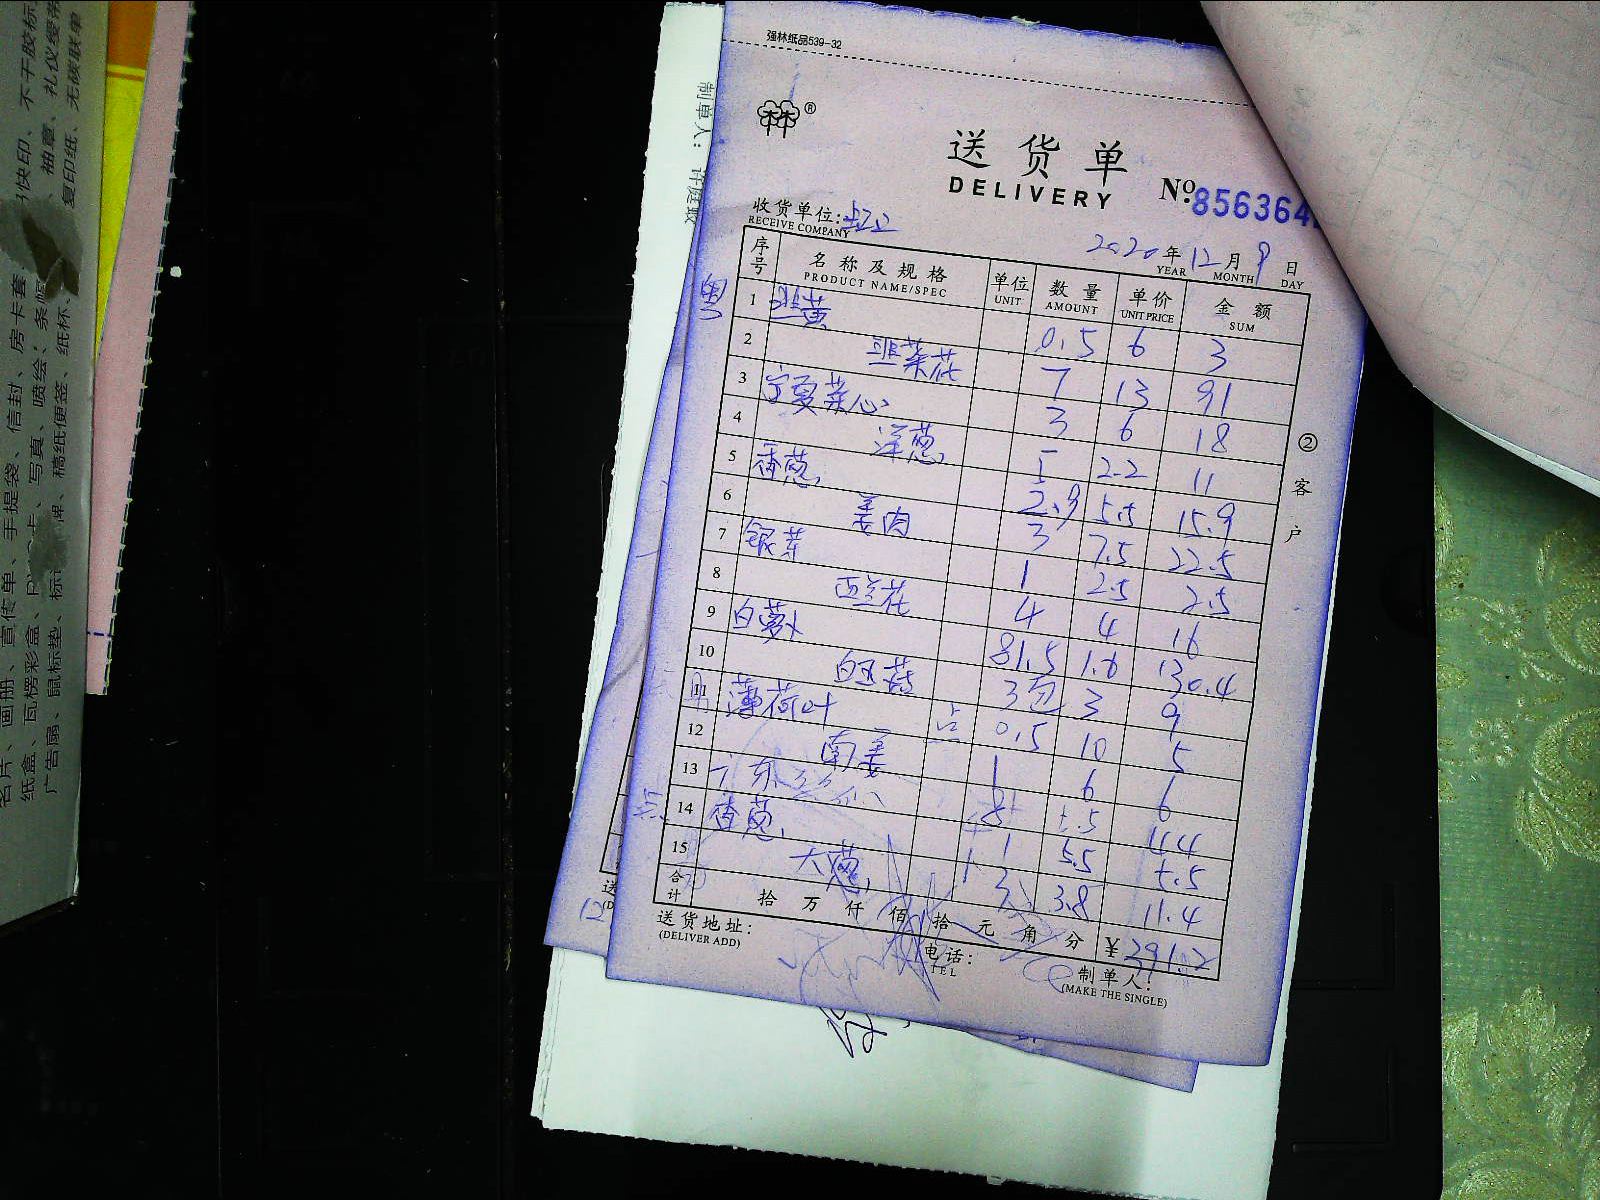 强林纸品539-32
制单人：许庭
送货单
DELIVERY
№ 856364
收货单位：
RECEIVE COMPANY
2020 年 12 月 9 日
YEAR MONTH DAY
序号 名称及规格 单位 数量 单价 金额
PRODUCT NAME/SPEC UNIT AMOUNT UNIT PRICE SUM
1 韭黄 0.5 6 3
2 韭菜花 7 13 91
3 宁夏菜心 3 6 18
4 洋葱 5 2.2 11
5 香葱 2.9 5.5 15.9
6 姜肉 3 7.5 22.5
7 银芽 1 2.5 2.5
8 西兰花 4 4 16
9 白萝卜 81.5 1.6 130.4
10 白玉菇 3包 3 9
11 薄荷叶 0.5 10 5
12 南姜 1 6 6
13 广东 8 5.5 44
14 香葱 1 5.5 5.5
15 大葱 3 3.8 11.4
合计 拾 万 仟 佰 拾 元 角 分 ¥391.2
送货地址：
(DELIVER ADD)
电话：
TEL
制单人：
(MAKE THE SINGLE)
②客户
快印、不干胶标
、抽章、礼仪绶带
复印纸、无碳联单
名片、画册、宣传单、手提袋、信封、房卡套
纸盒、瓦楞彩盒、卡、写真、喷绘；条幅
广告扇、鼠标垫、标牌、稿纸便签、纸杯、